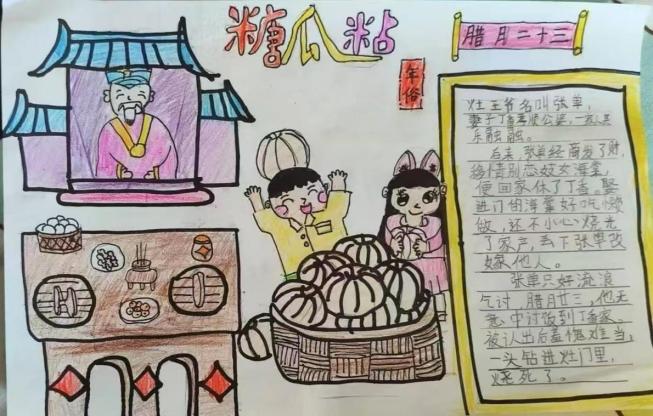 糖瓜粘
年俗
腊月二十三
灶王爷名叫张单，
妻子丁香孝顺公婆，一家人其
乐融融。
后来，张单经商发了财，
移情别恋妓女海棠，
便回家休了丁香。娶
进门的海棠好吃懒
做，还不小心烧光
了家产，丢下张单改
嫁他人。
张单只好流浪
乞讨 腊月廿三，他无
意中讨饭到丁香家。
被认出后羞愧难当，
一头钻进灶门里，
烧死了。